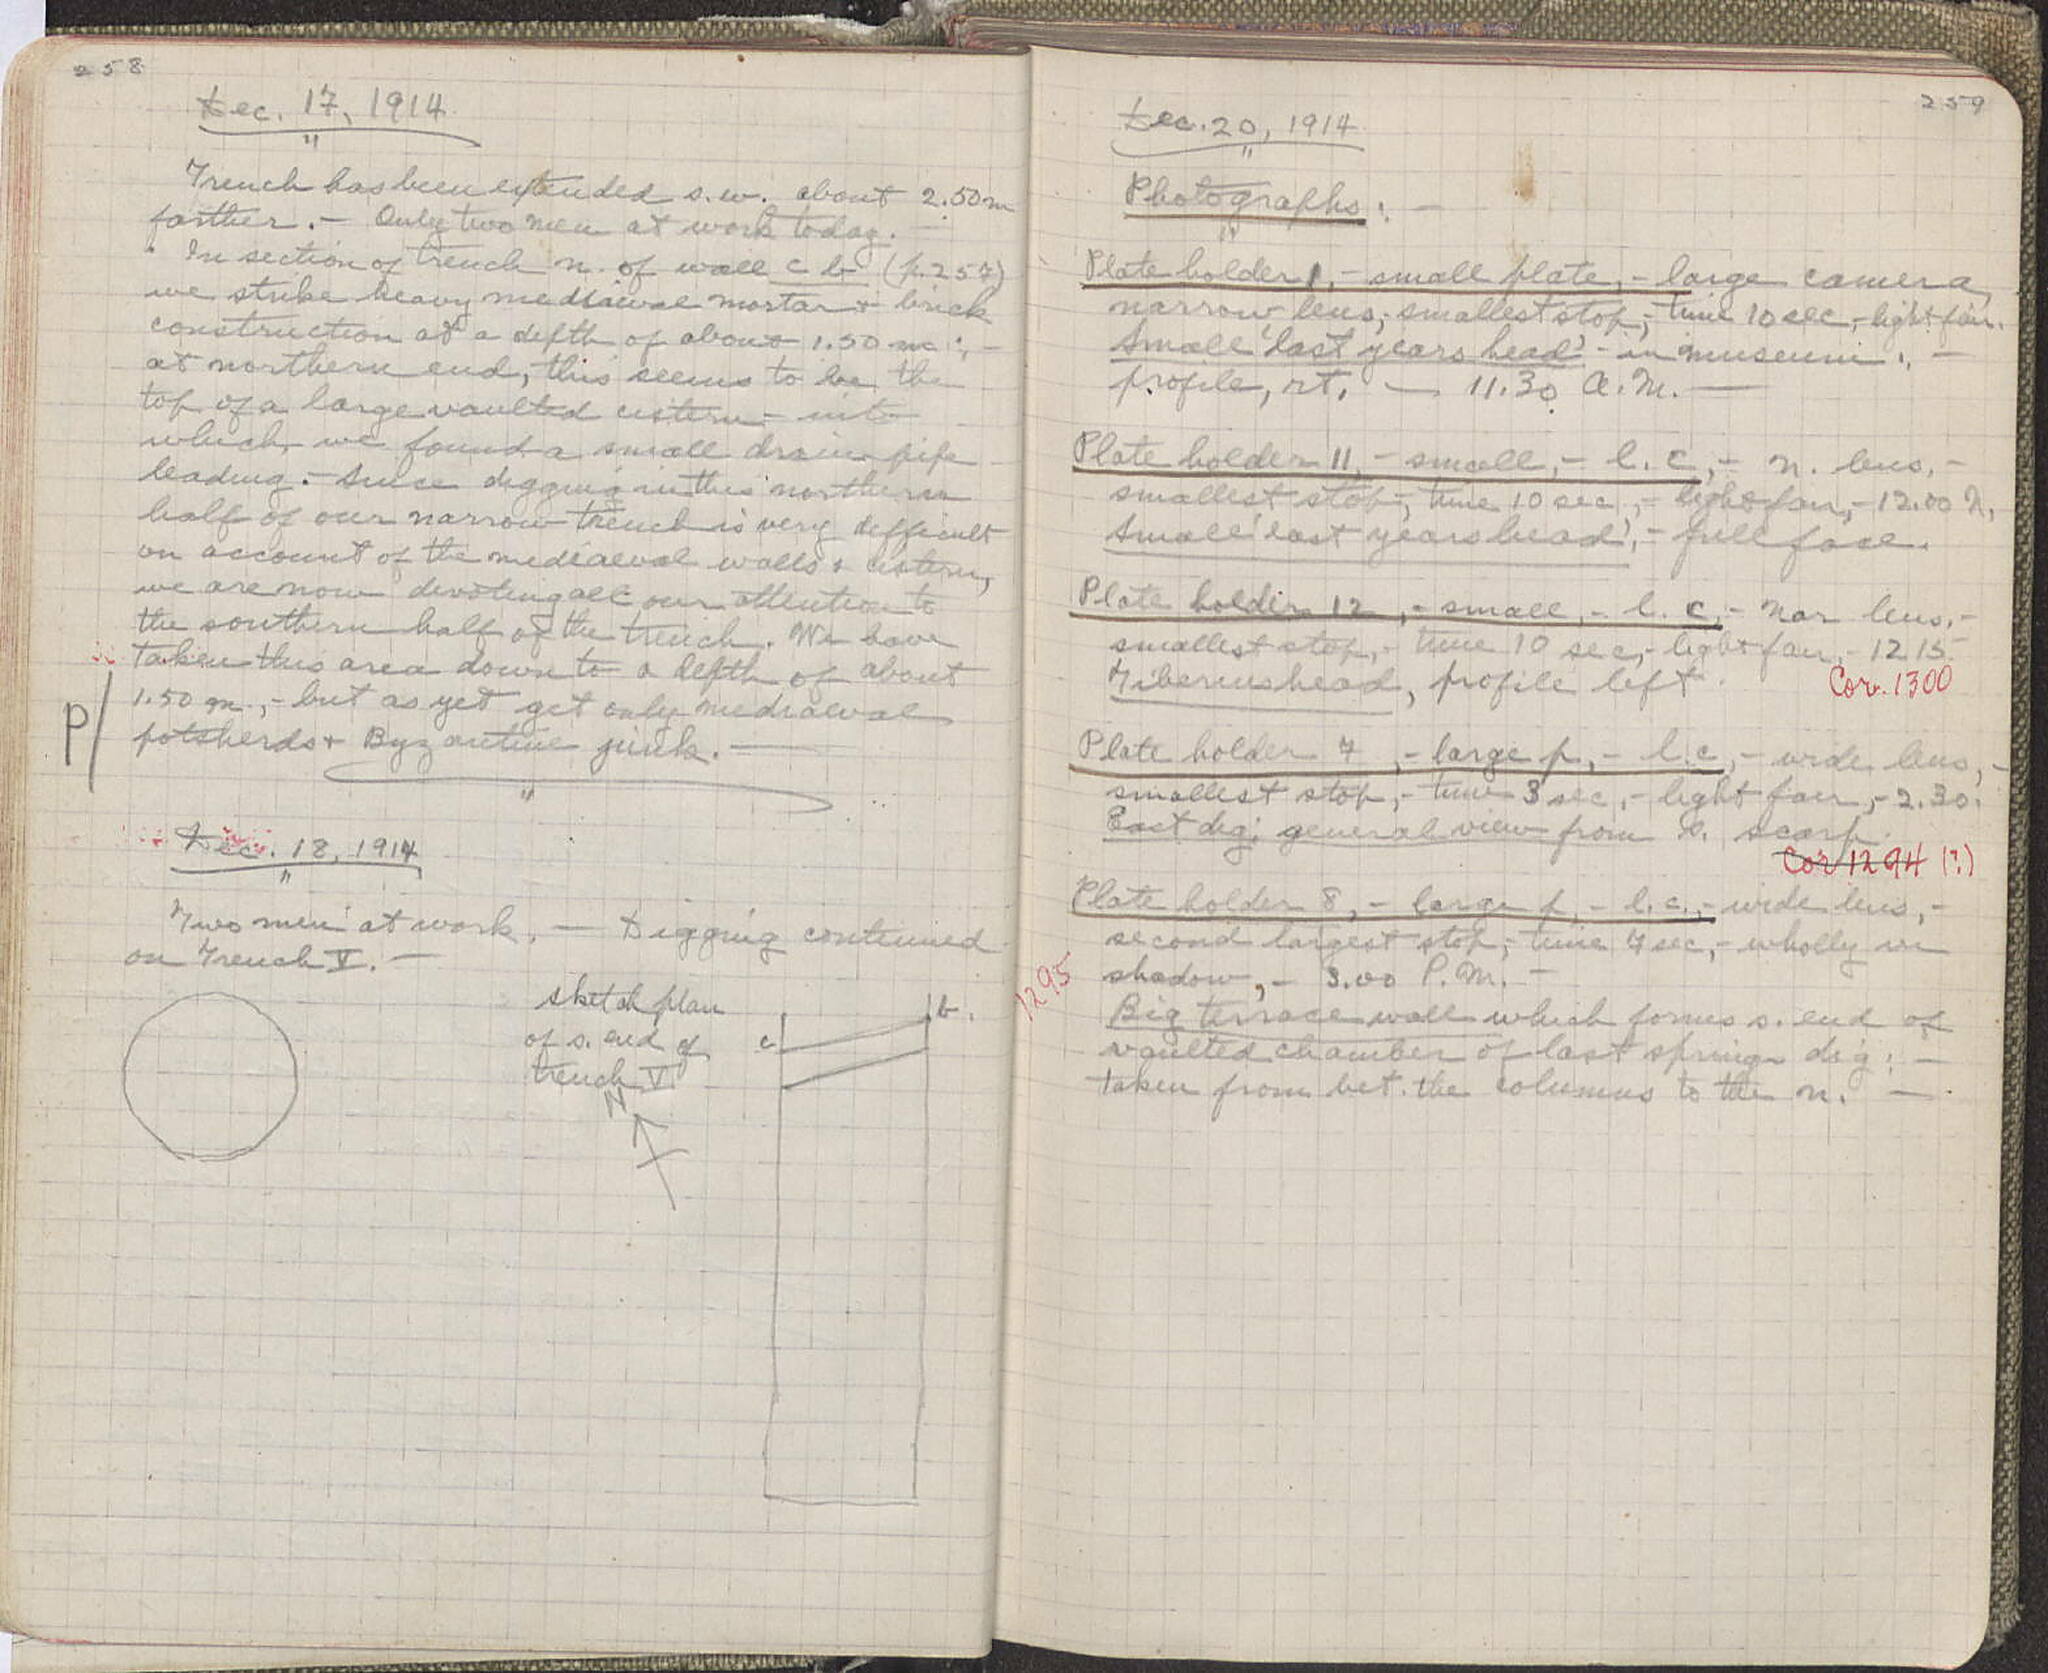 258
Dec. 17, 1914
Trench has been extended s.w. about 2.50 m
farther. – Only two men at work today. –
In section of trench n. of wall c b (p. 257)
we strike heavy mediaeval mortar + brick
construction at a depth of about 1.50 m :, –
at northern end, this seems to be the
top of a large vaulted cistern – into
which we found a small drain pipe
leading. – Since digging in this northern
half of our narrow trench is very difficult
on account of the mediaeval walls + cistern,
we are now devoting all our attention to
the southern half of the trench. We have
taken this area down to a depth of about
1.50 m., – but as yet get only mediaeval
potsherds + Byzantine junk. —
P/
Dec. 18, 1914
Two men at work. — Digging continued
on Trench V. –
sketch plan
of s. end of
trench V
N
c
b.
259
Dec. 20, 1914
Photographs : –
Plate holder 1, – small plate, – large camera,
narrow lens, – smallest stop, – time 10 sec, – light fair.
Small 'last years head' – in museum :, –
profile, rt, — 11.30 A.M. —
Plate holder 11, – small, – l. c, – n. lens, –
smallest stop, – time 10 sec, – light fair, – 12.00 N,
Small 'last years head', – full face.
Plate holder 12, – small, – l. c, – nar lens, –
smallest stop, – time 10 sec, – light fair, – 12 15
Tiberius head, profile left.
Cor. 1300
Plate holder 7, – large p, – l.c, – wide lens, –
smallest stop, – time 3 sec, – light fair, – 2.30.
East dig; general view from s. scarp.
Cor 1294 (?)
Plate holder 8, – large p, – l.c., – wide lens, –
second largest stop, – time 7 sec, – wholly in
shadow, – 3.00 P.M. –
1295
Big terrace wall which forms s. end of
vaulted chamber of last springs dig : –
taken from bet. the columns to the n. —